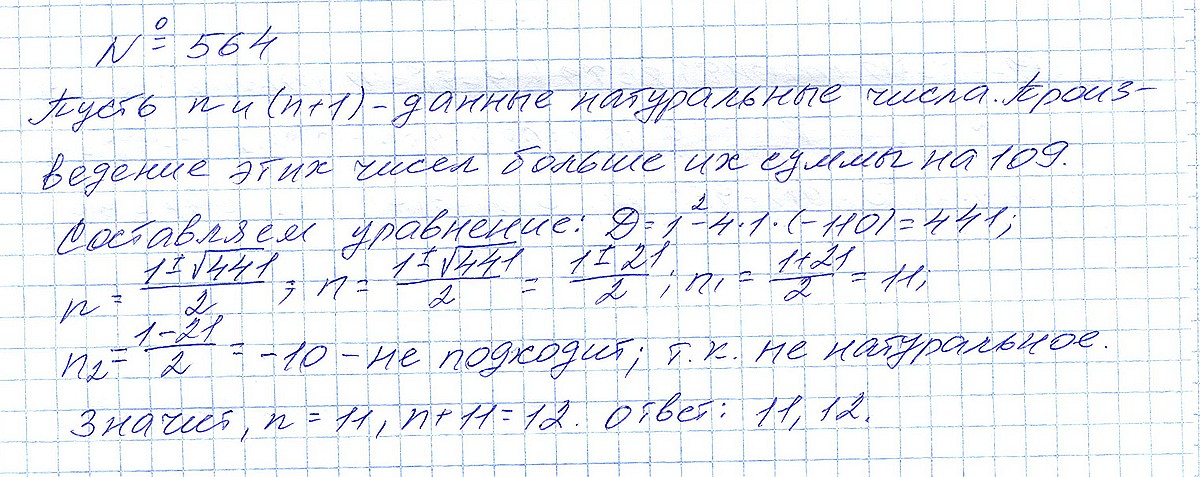 № 564
Пусть n и (n+1) - данные натуральные числа. Произ-
ведение этих чисел больше их суммы на 109.
Составляем уравнение: D = 1² - 4·1·(-110) = 441;
n = (1±√441)/2; n = (1±√441)/2 = (1±21)/2; n₁ = (1+21)/2 = 11;
n₂ = (1-21)/2 = -10 - не подходит; т.к. не натуральное.
Значит, n = 11, n+11=12. Ответ: 11, 12.